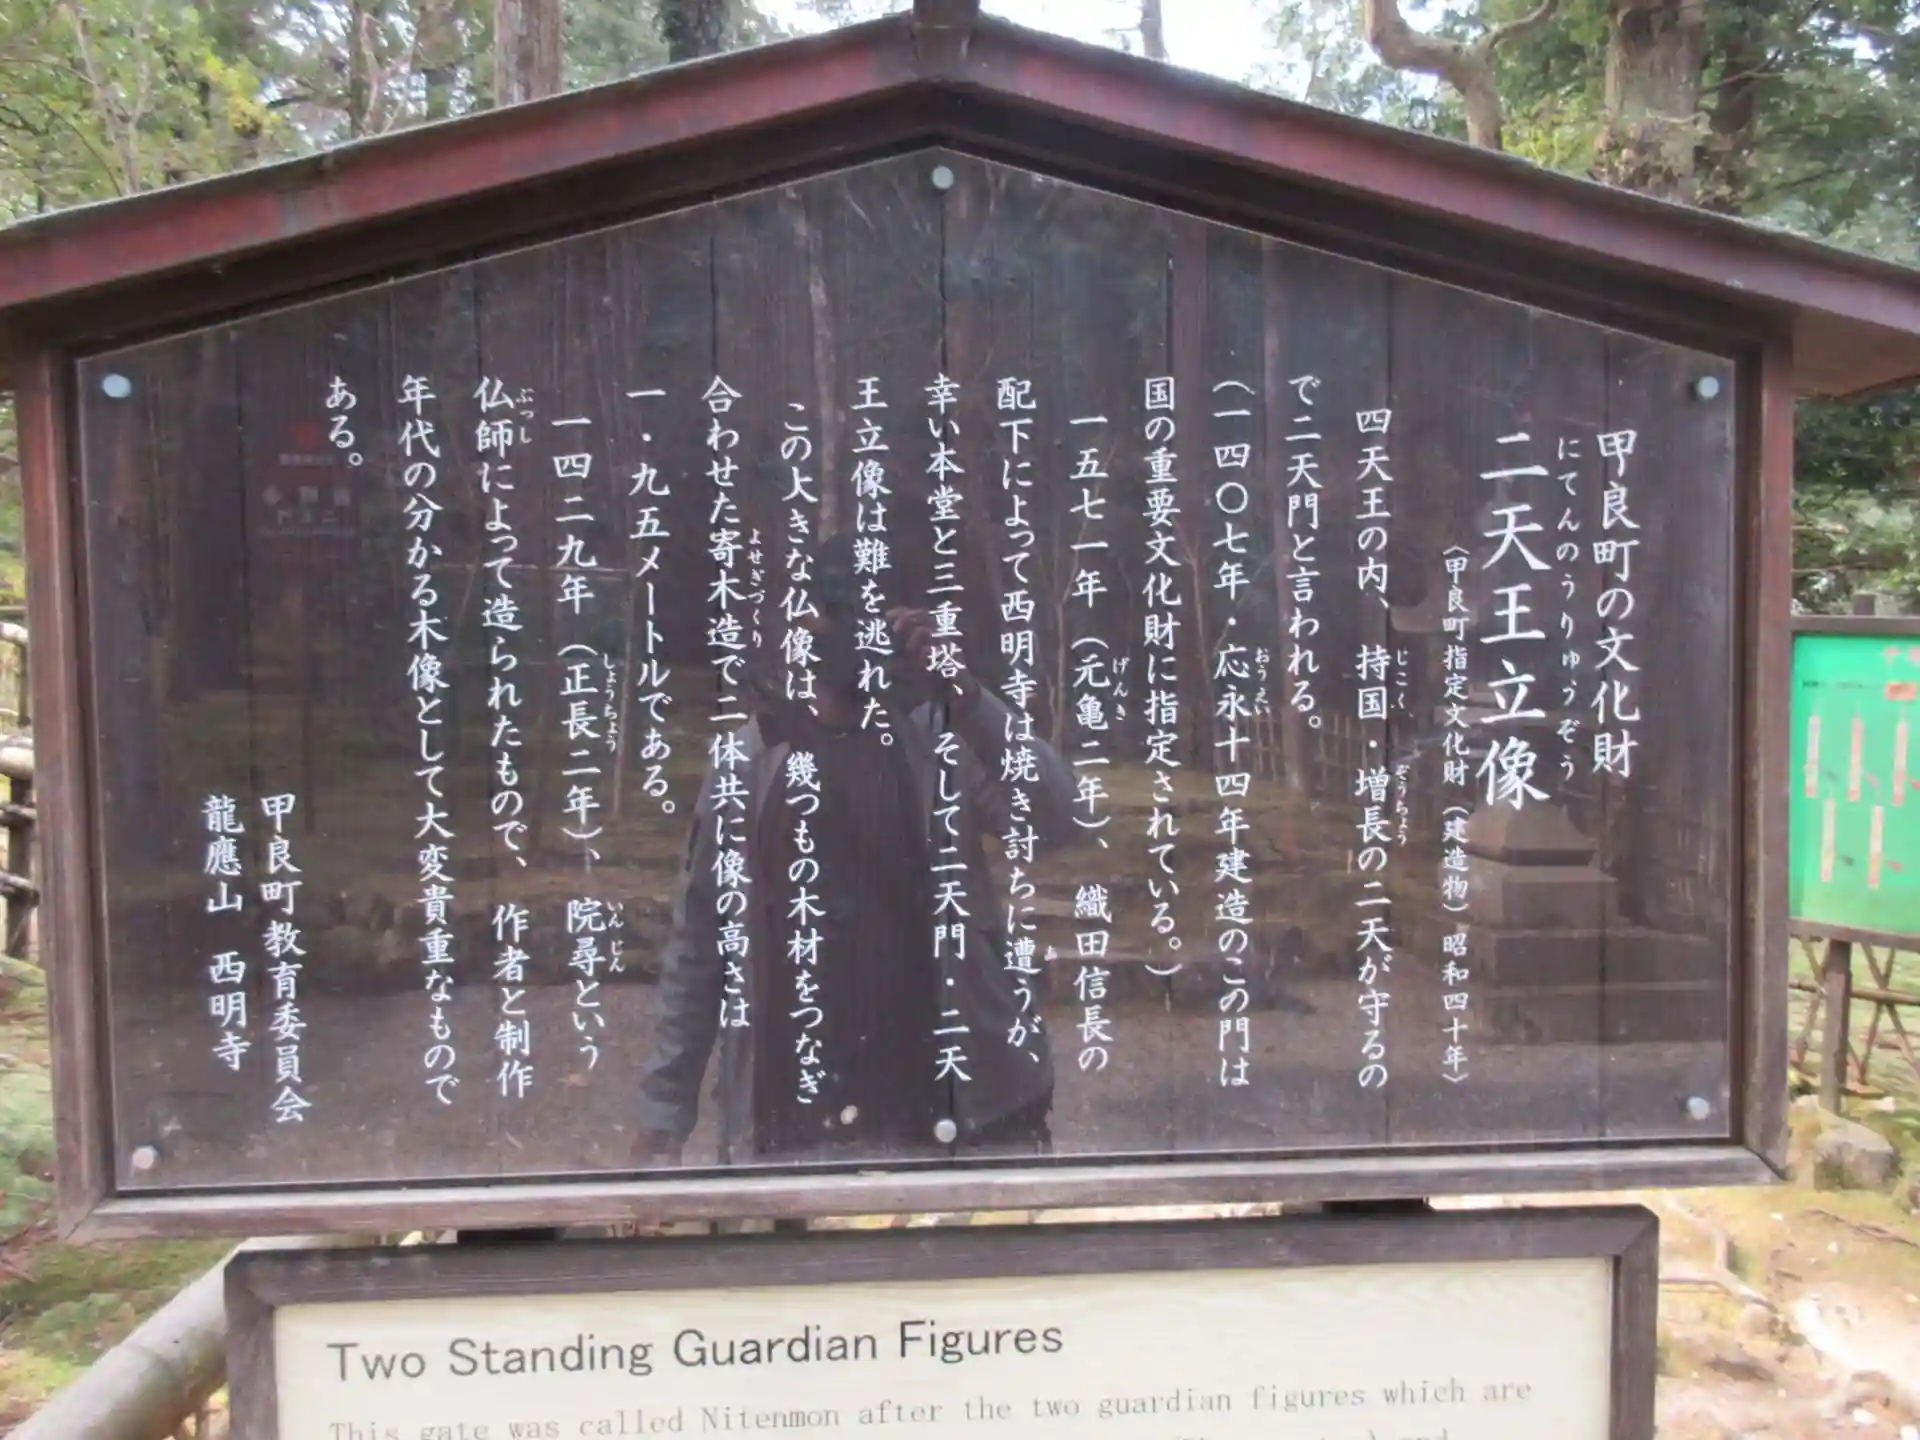 甲良町の文化財
にてんのうりゅうぞう
二天王立像
(甲良町指定文化財(建造物)昭和四十年)
四天王の内、持国・増長の二天が守るの
じこく ぞうちょう
で二天門と言われる。
(一四〇七年・応永十四年建造のこの門は
おうえい
国の重要文化財に指定されている。)
一五七一年(元亀二年)、織田信長の
げんき
配下によって西明寺は焼き討ちに遭うが、
幸い本堂と三重塔、そして二天門・二天
王立像は難を逃れた。
この大きな仏像は、幾つもの木材をつなぎ
合わせた寄木造で二体共に像の高さは
よせぎづくり
一・九五メートルである。
一四二九年(正長二年)、院尋という
しょうちょう いんじん
仏師によって造られたもので、作者と制作
ぶっし
年代の分かる木像として大変貴重なもので
ある。
甲良町教育委員会
龍應山 西明寺
Two Standing Guardian Figures
This gate was called Nitenmon after the two guardian figures which are